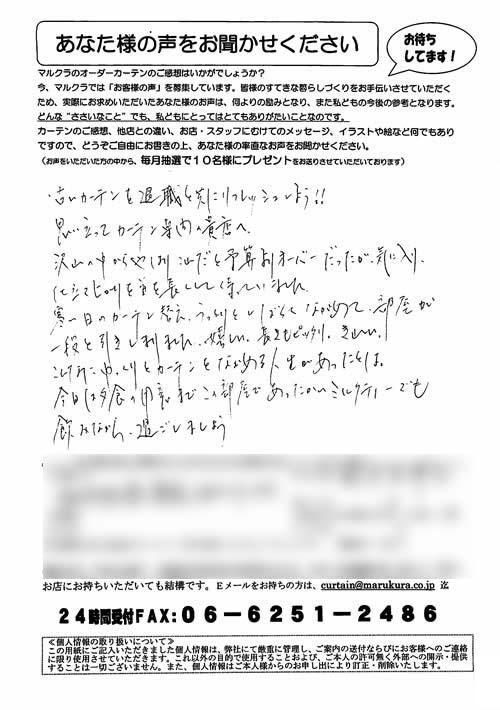 あなた様の声をお聞かせください
お待ち
してます！
マルクラのオーダーカーテンのご感想はいかがでしょうか？
今、マルクラでは「お客様の声」を募集しています。皆様のすてきな暮らしづくりをお手伝いさせていただく
ため、実際にお求めいただいたあなた様のお声は、何よりの励みとなり、また私どもの今後の参考となります。
どんな“ささいなこと”でも、私どもにとってはとてもありがたいことなのです。
カーテンのご感想、他店との違い、お店・スタッフにむけてのメッセージ、イラストや絵など何でもあり
ですので、どうぞご自由にお書きの上、あなた様の率直なお声をお聞かせください。
（お声をいただいた方の中から、毎月抽選で１０名様にプレゼントをお送りさせていただいております）
古いカーテンを退職を気にリフレッシュしよう!!
思い立ってカーテン専門の貴店へ、
沢山の中からやはり 予算よりオーバーだったが、気に入り、
仕立て上りを首を長くして待っていました。
寒い日のカーテン替え、うっとりとしばらくながめて、部屋が
一段と引きしまれた、嬉しい、長さもピッタリ、
こんなにゆっくりとカーテンをながめる人生があったとは。
今日は夕食の用意までこの部屋であったかいミルクティーでも
飲みながら、過ごしましょう
お店にお持ちいただいても結構です。Ｅメールをお持ちの方は、curtain@marukura.co.jp 迄
２４時間受付FAX:０６－６２５１－２４８６
≪個人情報の取り扱いについて≫
この用紙にご記入いただきました個人情報は、弊社にて厳重に管理し、ご案内の送付ならびにお客様へのご連絡
に限り使用させていただきます。これ以外の目的で使用することおよび、ご本人の許可無く外部への開示・提供
することは一切ございません。また、個人情報はご本人様からのお申し出により訂正・削除いたします。